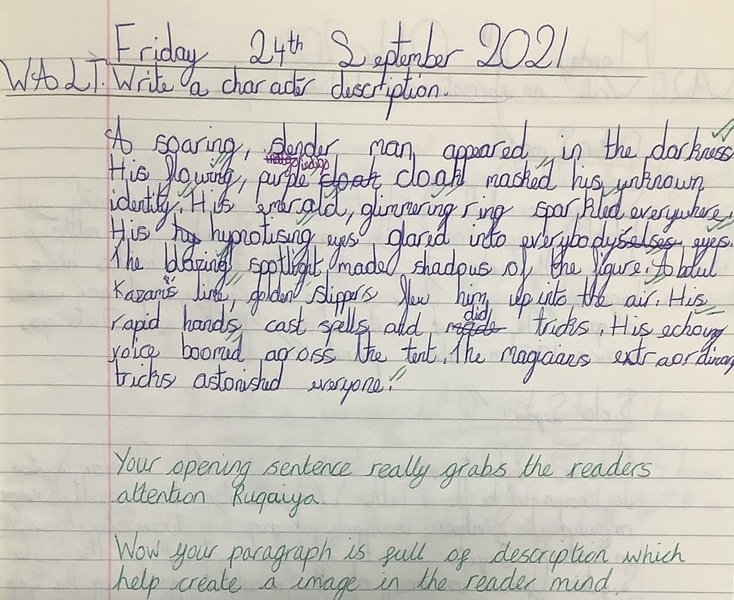 Friday 24th September 2021
WALT: Write a character description.
A soaring, slender man, appeared in the darkness.
indigo
His flowing, purple cloak cloak masked his unknown
identity. His emerald, glimmering ring sparkled everywhere.
His hyp hypnotising eyes glared into everybodys selses eyes.
The blazing spotlight made shadows of the figure. Abdul
Kazam's line, golden slippers flew him up into the air. His
did
rapid hands cast spells and made tricks. His echoing
voice boomed across the tent. The magicians extraordinary
tricks astonished everyone!
Your opening sentence really grabs the readers
attention Ruqaiya
Wow your paragraph is full of description which
help create a image in the reader mind.